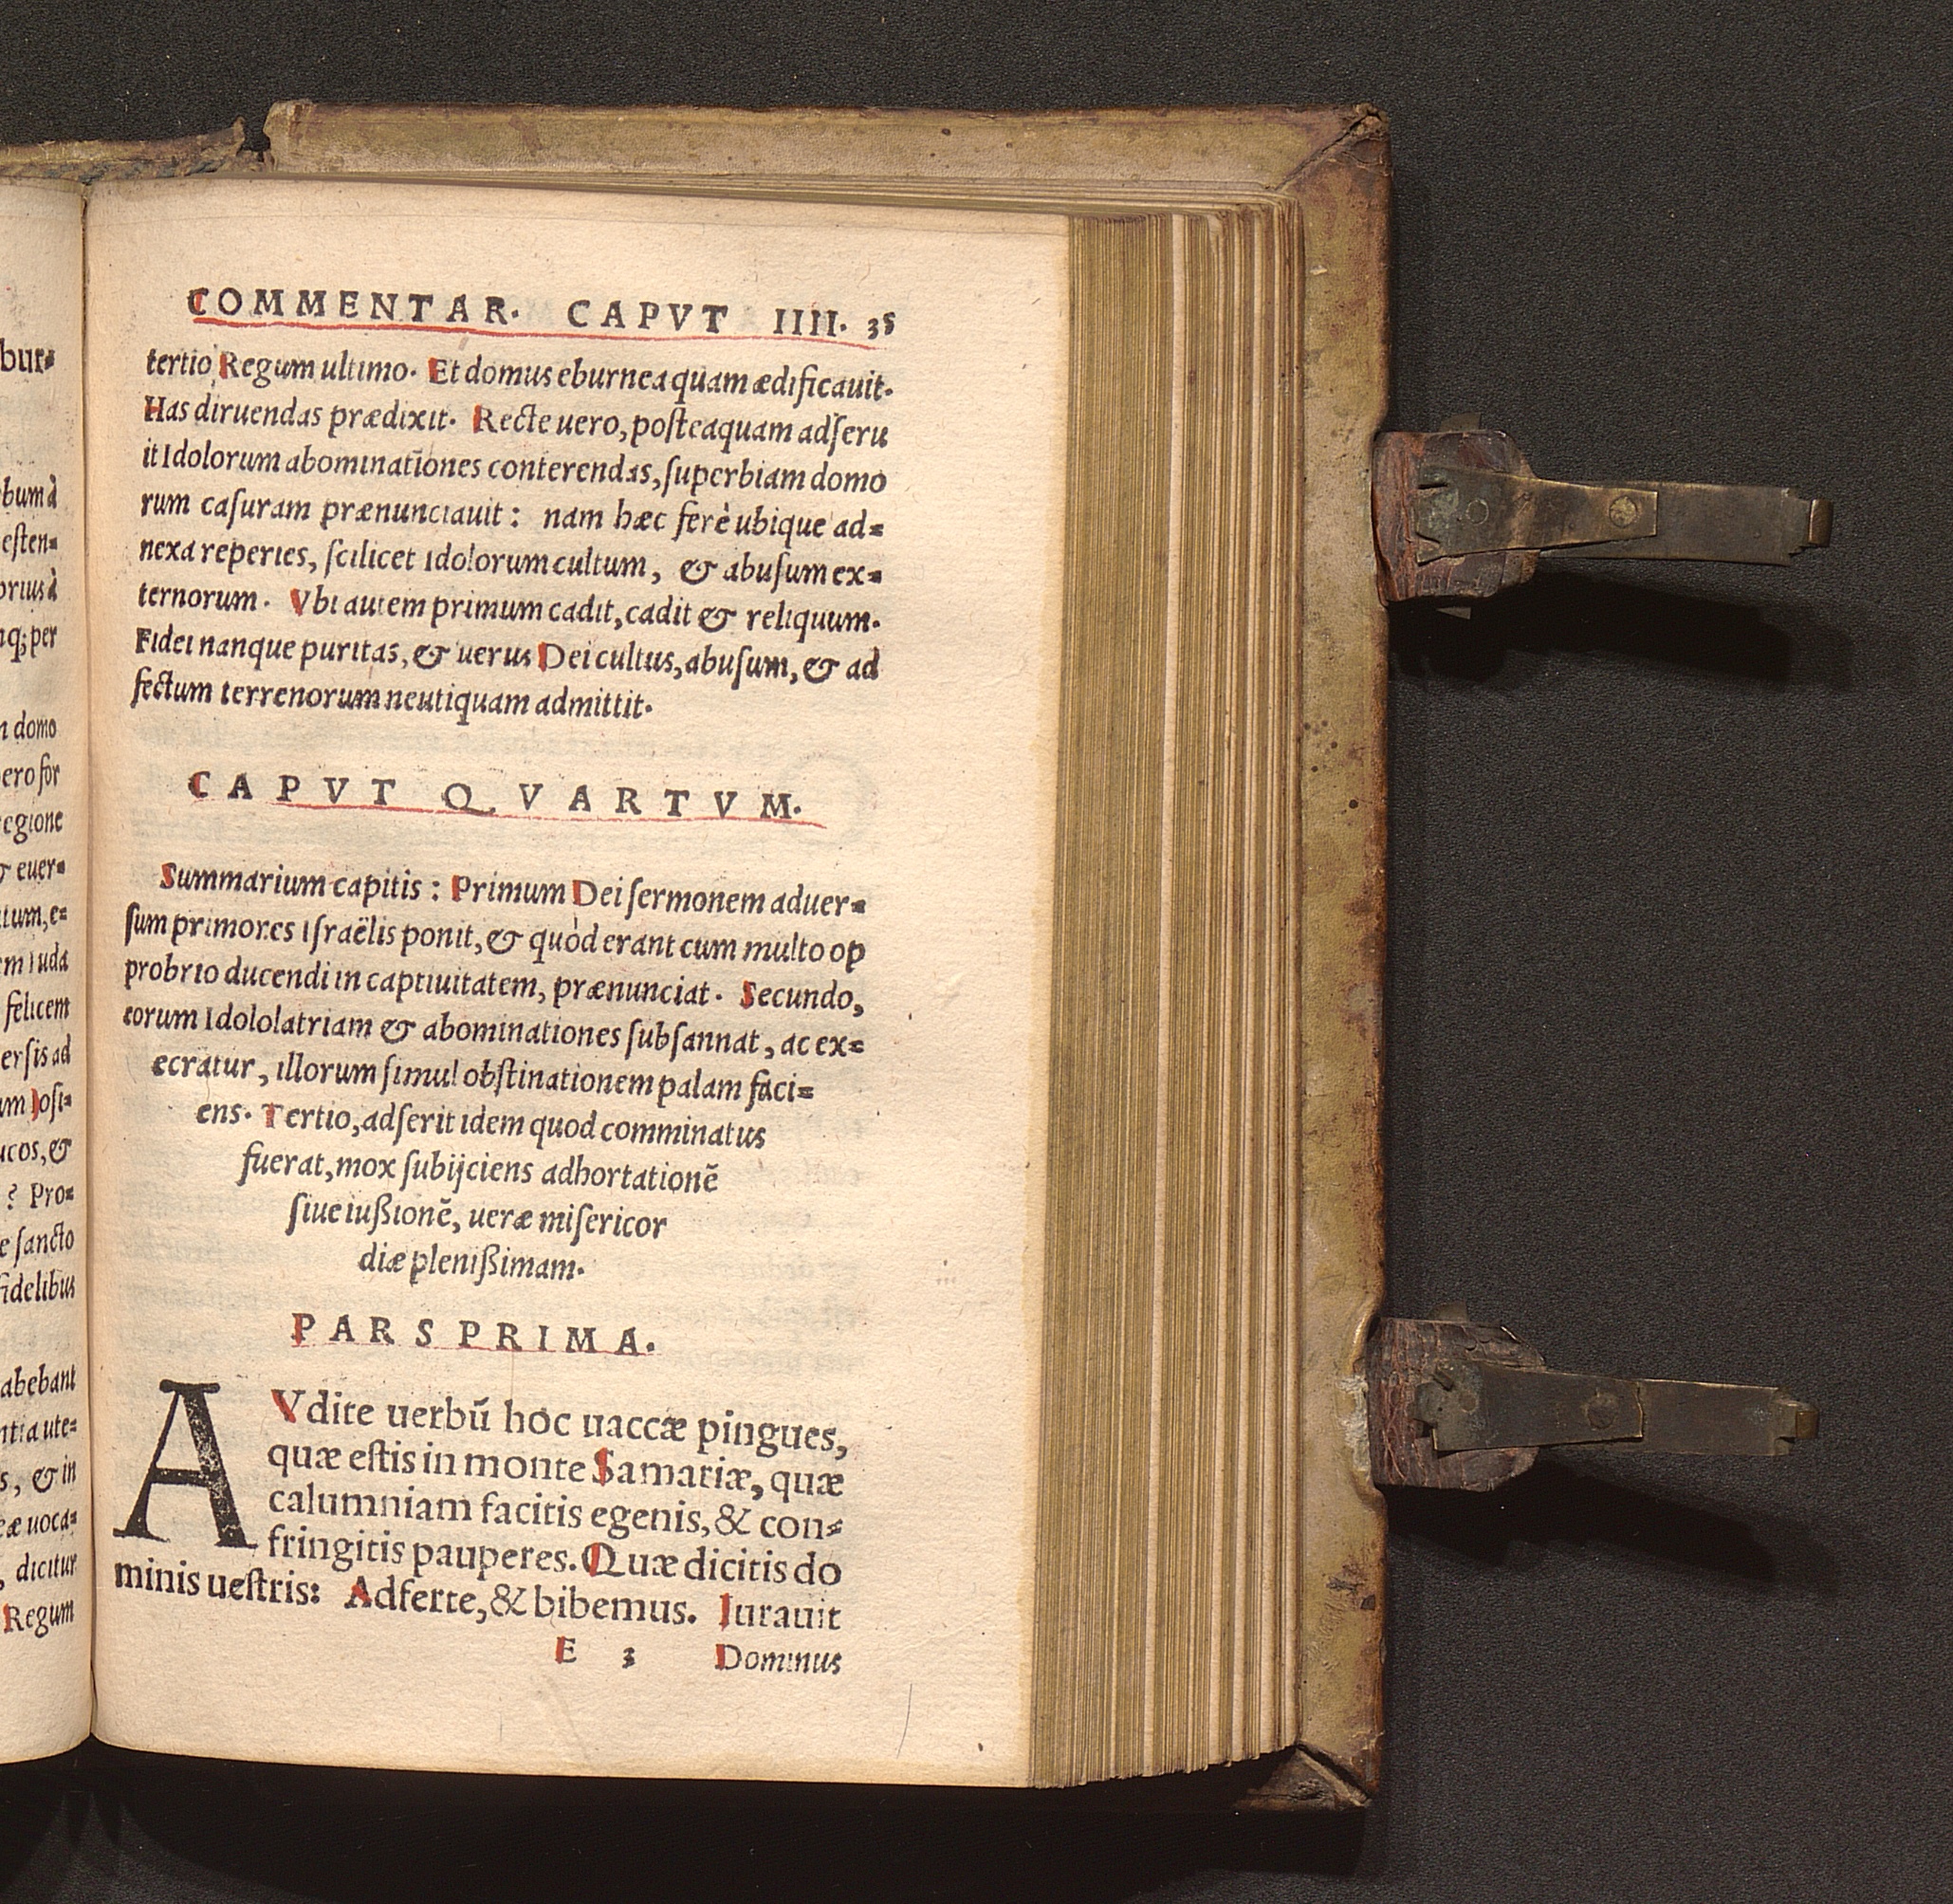 bur⸗
bum à
esten⸗
prius à
nq; per
n domo
ero for
regione
& euer⸗
tum, e⸗
em Iuda
felicem
ersis ad
um Iosi⸗
ucos, &
? Pro⸗
e sancto
fidelibus
abebant
ntia ute⸗
s, & in
eæ uoca⸗
, dicitur
Regum
COMMENTAR. CAPVT IIII. 35
tertio Regum ultimo. Et domus eburnea quam ædificauit.
Has diruendas prædixit. Recte uero, posteaquam adſeru
it Idolorum abominationes conterendas, ſuperbiam domo
rum caſuram prænunciauit: nam hæc ferè ubique ad⸗
nexa reperies, ſcilicet Idolorum cultum, & abuſum ex⸗
ternorum. Vbi autem primum cadit, cadit & reliquum.
Fidei nanque puritas, & uerus Dei cultus, abuſum, & ad
fectum terrenorum neutiquam admittit.
CAPVT QVARTVM.
Summarium capitis: Primum Dei ſermonem aduer⸗
ſum primores Iſraëlis ponit, & quòd erant cum multo op
probrio ducendi in captiuitatem, prænunciat. Secundo,
eorum Idololatriam & abominationes ſubſannat, ac ex⸗
ecratur, illorum ſimul obſtinationem palam faci⸗
ens. Tertio, adſerit idem quod comminatus
fuerat, mox ſubijciens adhortationē
ſiue iußionē, ueræ miſericor
diæ pleniſſimam.
PARS PRIMA.
AVdite uerbū hoc uaccæ pingues,
quæ eſtis in monte Samariæ, quæ
calumniam facitis egenis, & con⸗
fringitis pauperes. Quæ dicitis do
minis ueſtris: Adferte, & bibemus. Iurauit
E 3 Dominus